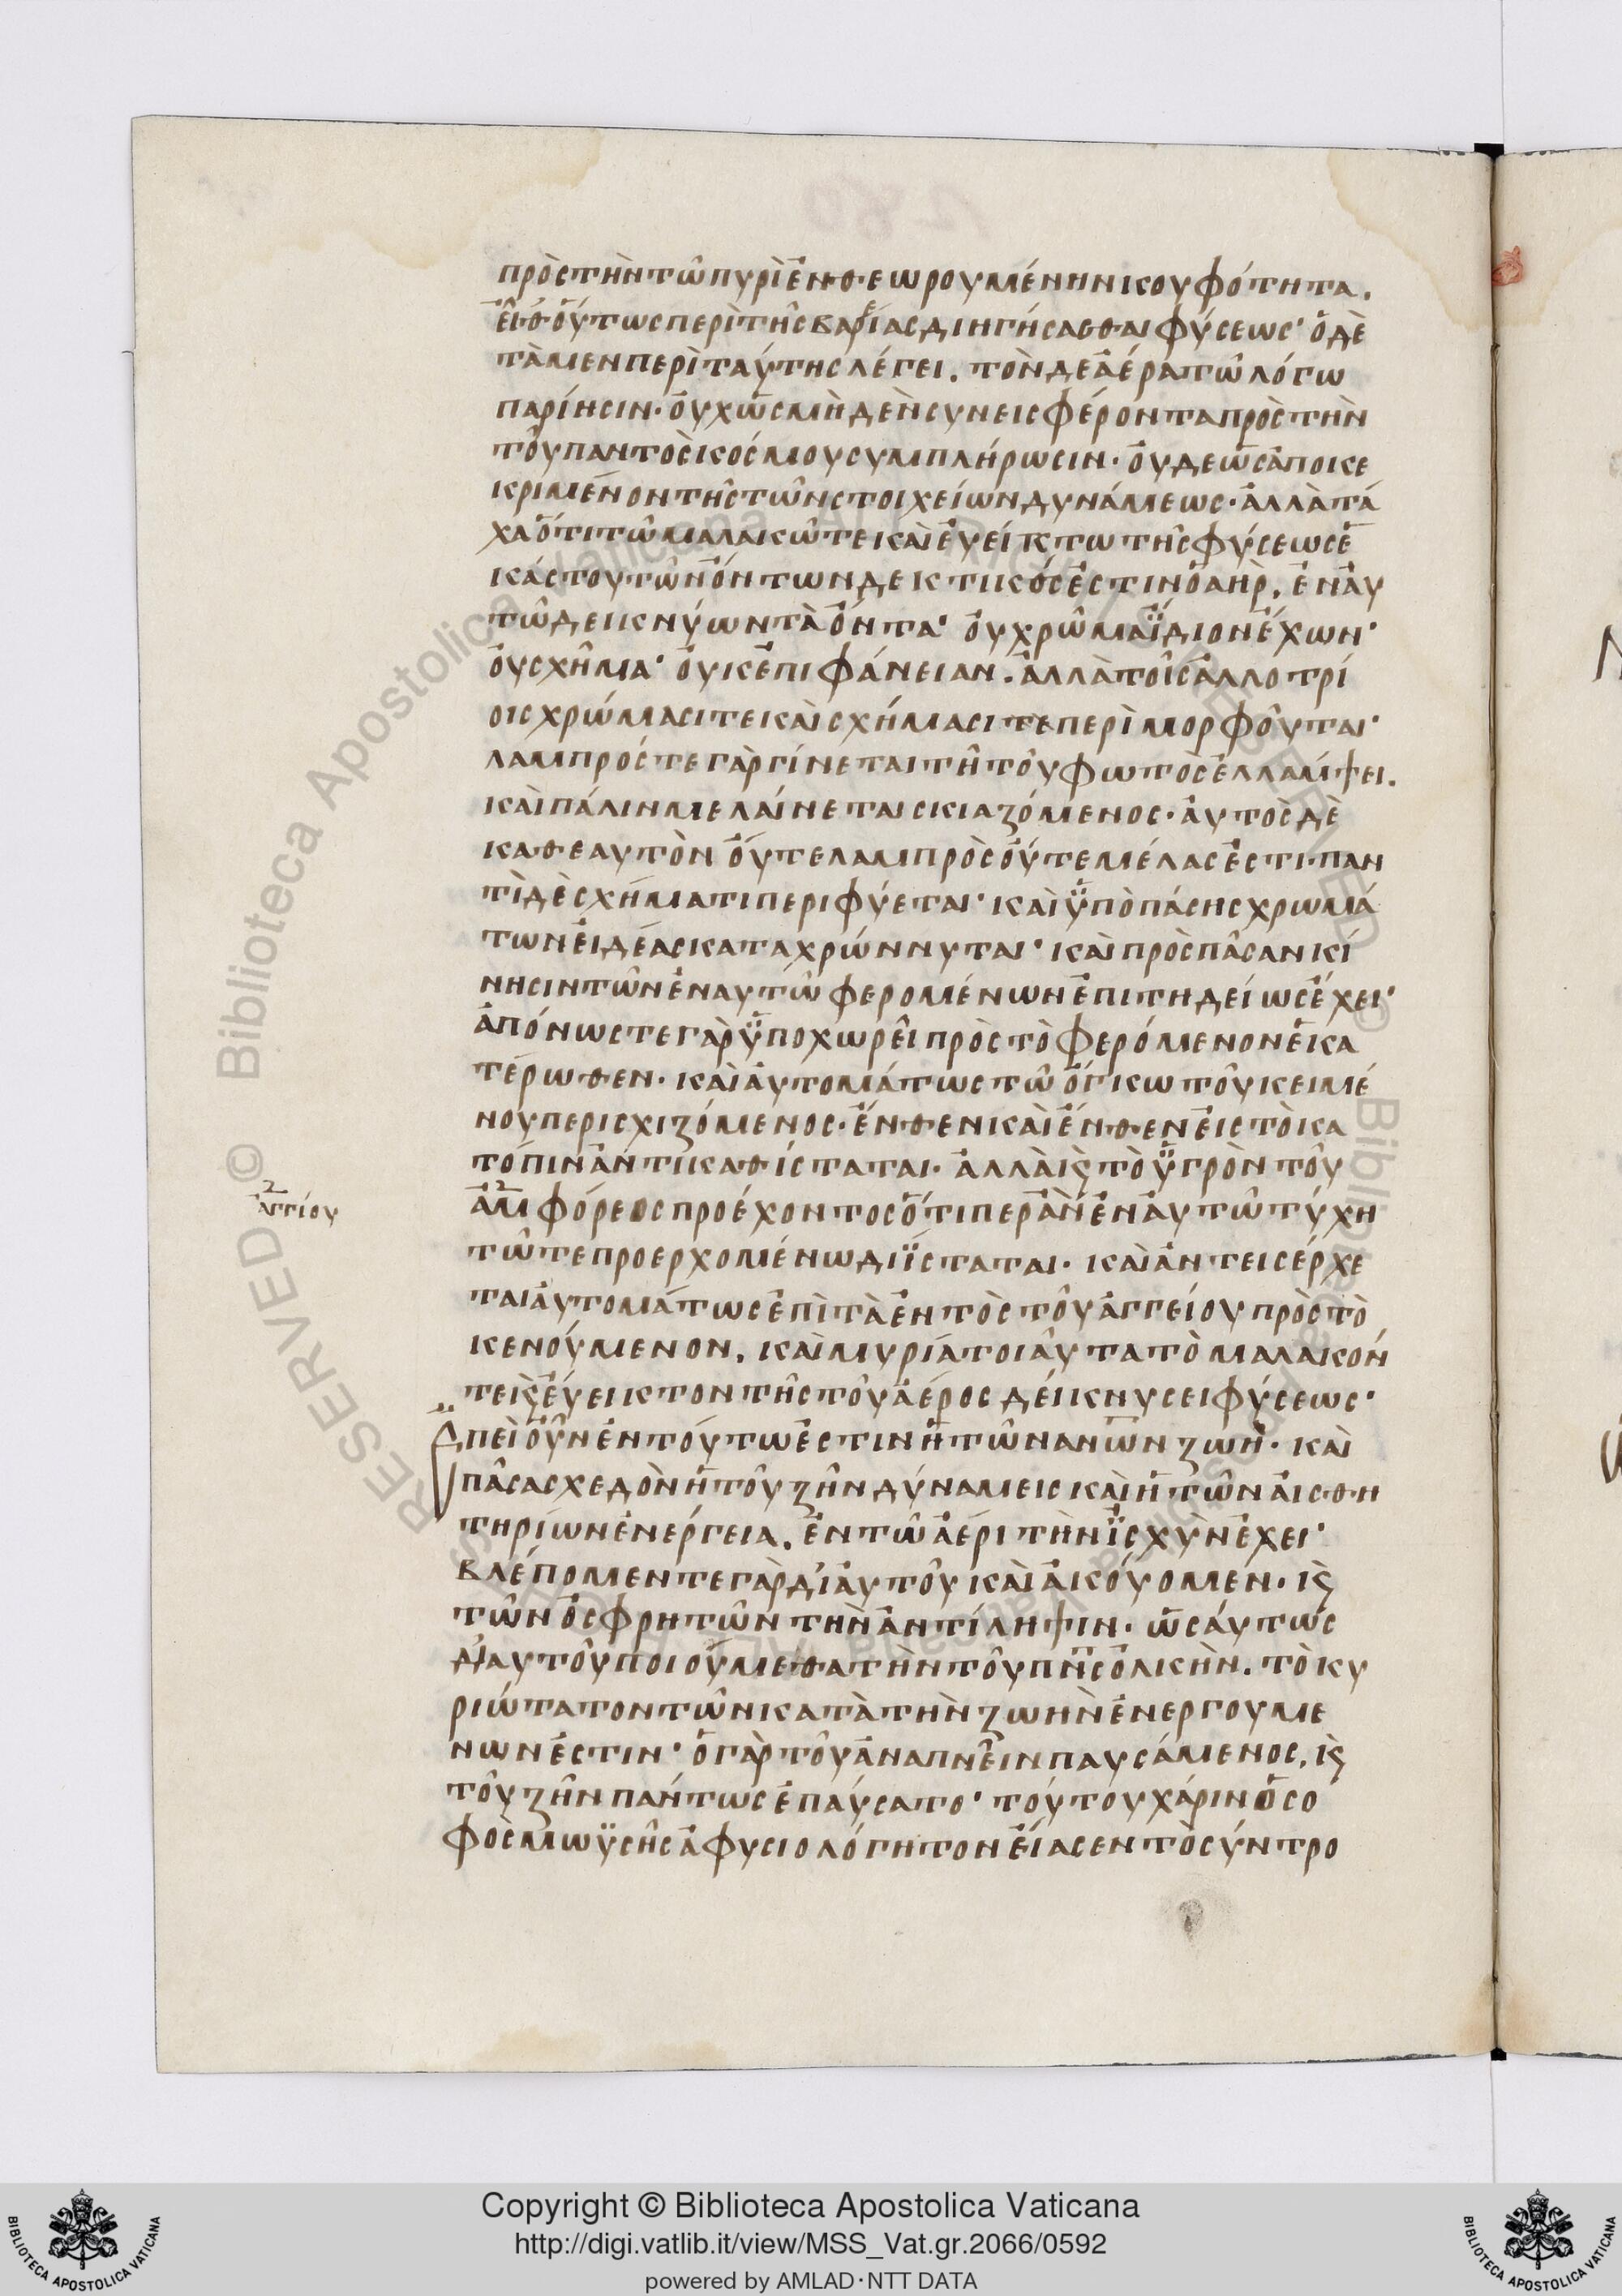 πρὸς τὴν τῶ πυρὶ ἐνθεωρουμένην κουφότητα.
εἶθ οὕτως περὶ τῆς βαρείας διηγήσασθαι φύσεως· ὁ δὲ
τὰ μὲν περὶ ταύτης λέγει. τὸν δὲ ἀέρα τῶ λόγω
παρίησιν· οὐχ ὡς μηδὲν συνεισφέροντα πρὸς τὴν
τοῦ παντὸς κόσμου συμπλήρωσιν· οὐδε ὡς ἀποκε
κριμένον τῆς τῶν στοιχείων δυνάμεως· ἀλλὰ τά
χα ὅτι τῶ μαλακῶ τε καὶ ἐυείκτω τῆς φύσεως ἑ
κάστου τῶν ὄντων δεκτικός ἐστιν ὁ αὴρ, ἐν ἀυ
τῶ δεικνύων τὰ ὄντα· οὐ χρῶμα ΐδιον ἔχων·
οὐ σχῆμα· οὐκ ἐπιφάνειαν. ἀλλὰ τοῖς ἀλλοτρί
οις χρώμασί τε καὶ σχήμασι τε περὶ μορφοῦται·
λαμπρός τε γὰρ γίνεται τῆ τοῦ φωτὸς ἐλλάμψει.
καὶ πάλιν μελαίνεται σκιαζόμενος· ἀυτὸς δὲ
καθεαυτὸν οὔτε λαμπρὸς οὔτε μέλας ἐστι· παν
τὶ δὲ σχήματι περιφύεται· καὶ ϋπὸ πάσης χρωμά
των εἰδέας καταχρώννυται· καὶ πρὸς πᾶσαν κί
νησιν τῶν ἐν αυτῶ φερομένων ἐπιτηδείως ἔχει·
ἀπόνως τε γὰρ ϋποχωρεῖ πρὸς τὸ φερόμενον ἑκα
τέρωθεν· καὶ ἀυτομάτως τῶ ὄγκω τοῦ κειμέ
νου περισχιζόμενος· ἔνθεν καὶ ἔνθεν εἰς τὸ κα
τόπιν ἀντικαθίσταται· ἀλλὰ κ(αὶ) τὸ ϋγρὸν τοῦ
ἀμφόρεος προέχοντος ὅτιπερ ἂν ἐν ἀυτῶ τύχη
ἀγγίου
τῶ τε προερχομένω διΐσταται· καὶ ἀντεισέρχε
ται ἀυτομάτως ἐπὶ τὰ ἐντὸς τοῦ ἀγγείου πρὸς τὸ
κενούμενον, καὶ μυρία τοιαῦτα τὸ μαλακόν
τε κ(αὶ) ἐύεικτον τῆς τοῦ ἀέρος δείκνυσει φύσεως·
Ἐπεὶ οὖν ἐν τούτω ἐστιν ἡ τῶν ανων ζωή· καὶ
πᾶσα σχεδὸν ἡ τοῦ ζῆν δύναμεις καὶ ἡ τῶν ἀισθη
τηρίων ἐνέργεια, ἐν τῶ ἀέρι τὴν ΐσχὺν ἔχει·
βλέπομεν τε γὰρ δι ἀυτοῦ καὶ ἀκούομεν· κ(αὶ)
τῶν ὀσφρητῶν τὴν ἀντίληψιν· ὡσάυτως
δι αυτοῦ ποιούμεθα τὴν τοῦ πνς ὁλκὴν. τὸ κυ
ριώτατον τῶν κατὰ τὴν ζωὴν ἐνεργουμε
νων ἐστιν· ὁ γὰρ τοῦ ἀναπνεῖν παυσάμενος, κ(αὶ)
τοῦ ζῆν πάντως ἐπαύσατο· τούτου χάριν ὁ σο
φὸς μωϋσῆς ἀφυσιολόγητον εἴασεν τὸ σύντρο
Copyright © Biblioteca Apostolica Vaticana
http://digi.vatlib.it/view/MSS_Vat.gr.2066/0592
powered by AMLAD·NTT DATA